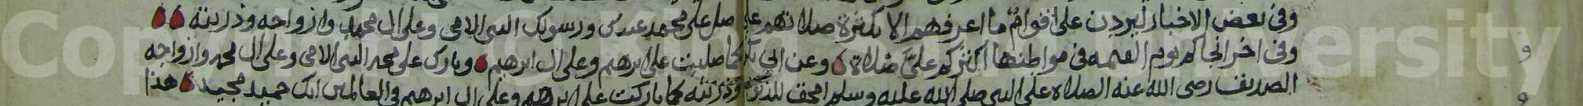 وفى بعض الاخبار ليردن على اقوام ما اعرفهم الا بكثرة صلاتهم على صل على محمد عبدك ورسولك النبى الامى وعلى ال محمد وازواجه وذريته
وفى اخر انجاكم يوم القيمه فى مواطنها اكثركم على صلاة وعن ابى بكر كما صليت على ابرهيم وعلى ال ابرهيم وبارك على محمد النبى الامى وعلى ال محمد وازواجه
الصديق رضى الله عنه الصلاة على النبى صلى الله عليه وسلم امحق للذنوب وذريته كما باركت على ابرهيم وعلى ال ابرهيم فى العالمين انك حميد مجيد هذا